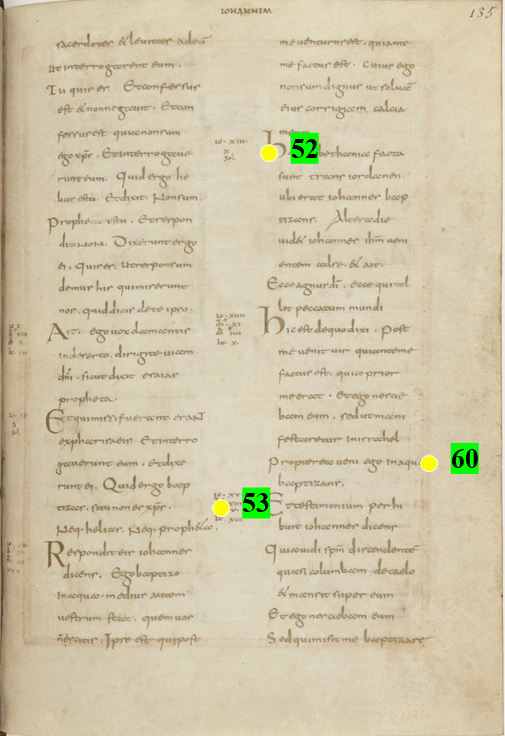 IOHANNEM
135
sacerdotes & leuitas ad eū
ut interrogarent eum.
Tu quis es. Et confessus
est & non negauit. Et con
fessus est quia non sum
ego xp̄s. Et interrogaue
runt eum. Quid ergo he
lias es tu. Et dixit. Non sum.
Propheta es tu. Et respon
dit NON. Dixerunt ergo
ei. Quis es. ut responsum
demus his qui miserunt
nos. quid dicis de te ipso.
Ait. ego uox clamantis
in deserto. dirigite uiam
dn̄i. sicut dixit esaias
propheta.
Et qui missi fuerant. erant
ex pharisaeis et interro
gauerunt eum. et dixe
runt ei. Quid ergo bap
tizas. si tu non es xp̄s.
Neq. helias. Neq. propheta.
Respondit eis iohannes
dicens. Ego baptizo
in aqua. medius autem
uestrum stat. quem uos
nescitis. Ipse est qui post
me uenturus est. qui ante
me factus est. cuius ego
non sum dignus ut soluā
eius corrigiam calcia
menti
52
bethania facta
sunt trans iordanen.
ubi erat iohannes bap
tizans. Altera die
uidet iohannes ih̄m ueni
entem ad se. & ait.
Ecce agnus dī. ecce qui tol
lit peccatum mundi
Hic est de quo dixi. Post
me uenit uir qui ante me
factus est. quia prior
me erat. et ego nescie
bam eum. sed ut mani
festaretur in israhel
Propterea ueni ego in aqua
60
baptizans.
53
Et testimonium perhi
buit iohannes dicens
Quia uidi sp̄m discendentē
quasi columbam de caelo
& mansit super eum
Et ego nesciebam eum
Sed qui misit me baptizare